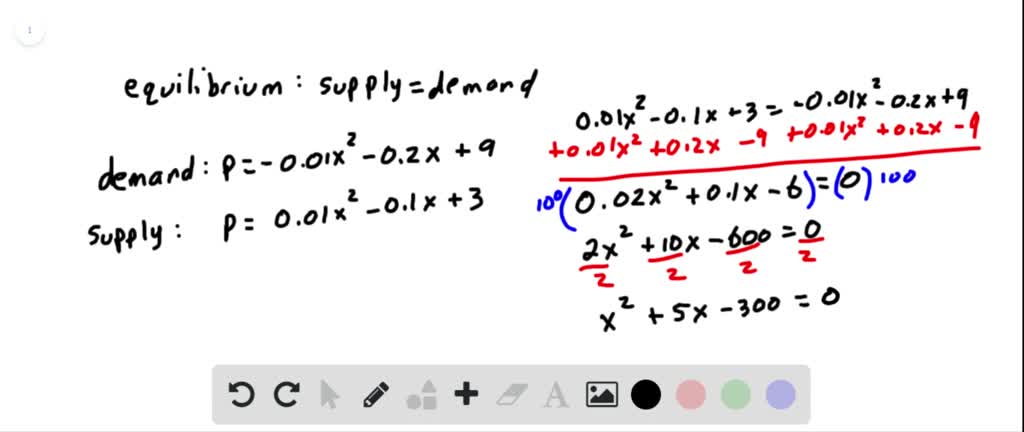 1
equilibrium: supply = demand
demand: p = -0.01x² - 0.2x + 9
supply: p = 0.01x² - 0.1x + 3
0.01x² - 0.1x + 3 = -0.01x² - 0.2x + 9
+0.01x² + 0.2x - 9 +0.01x² + 0.2x - 9
100(0.02x² + 0.1x - 6) = (0)100
2x² + 10x - 600 = 0
2 2 2 2
x² + 5x - 300 = 0
A